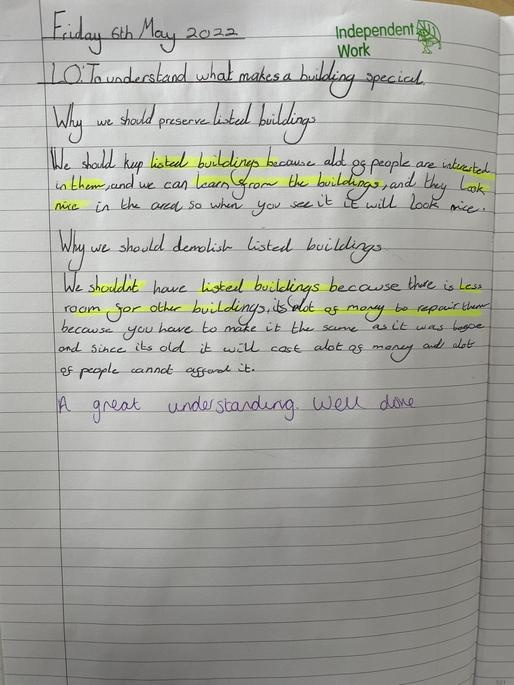 Friday 6th May 2022
Independent
Work
LO: To understand what makes a building special.
Why we should preserve listed buildings
We should keep listed buildings because alot of people are interested
in them, and we can learn from the buildings, and they look
nice in the area so when you see it it will look nice.
Why we should demolish listed buildings
We shouldn't have listed buildings because there is less
room for other buildings, its alot of money to repair them
because you have to make it the same as it was before
and since its old it will cost alot of money and alot
of people cannot afford it.
A great understanding. Well done